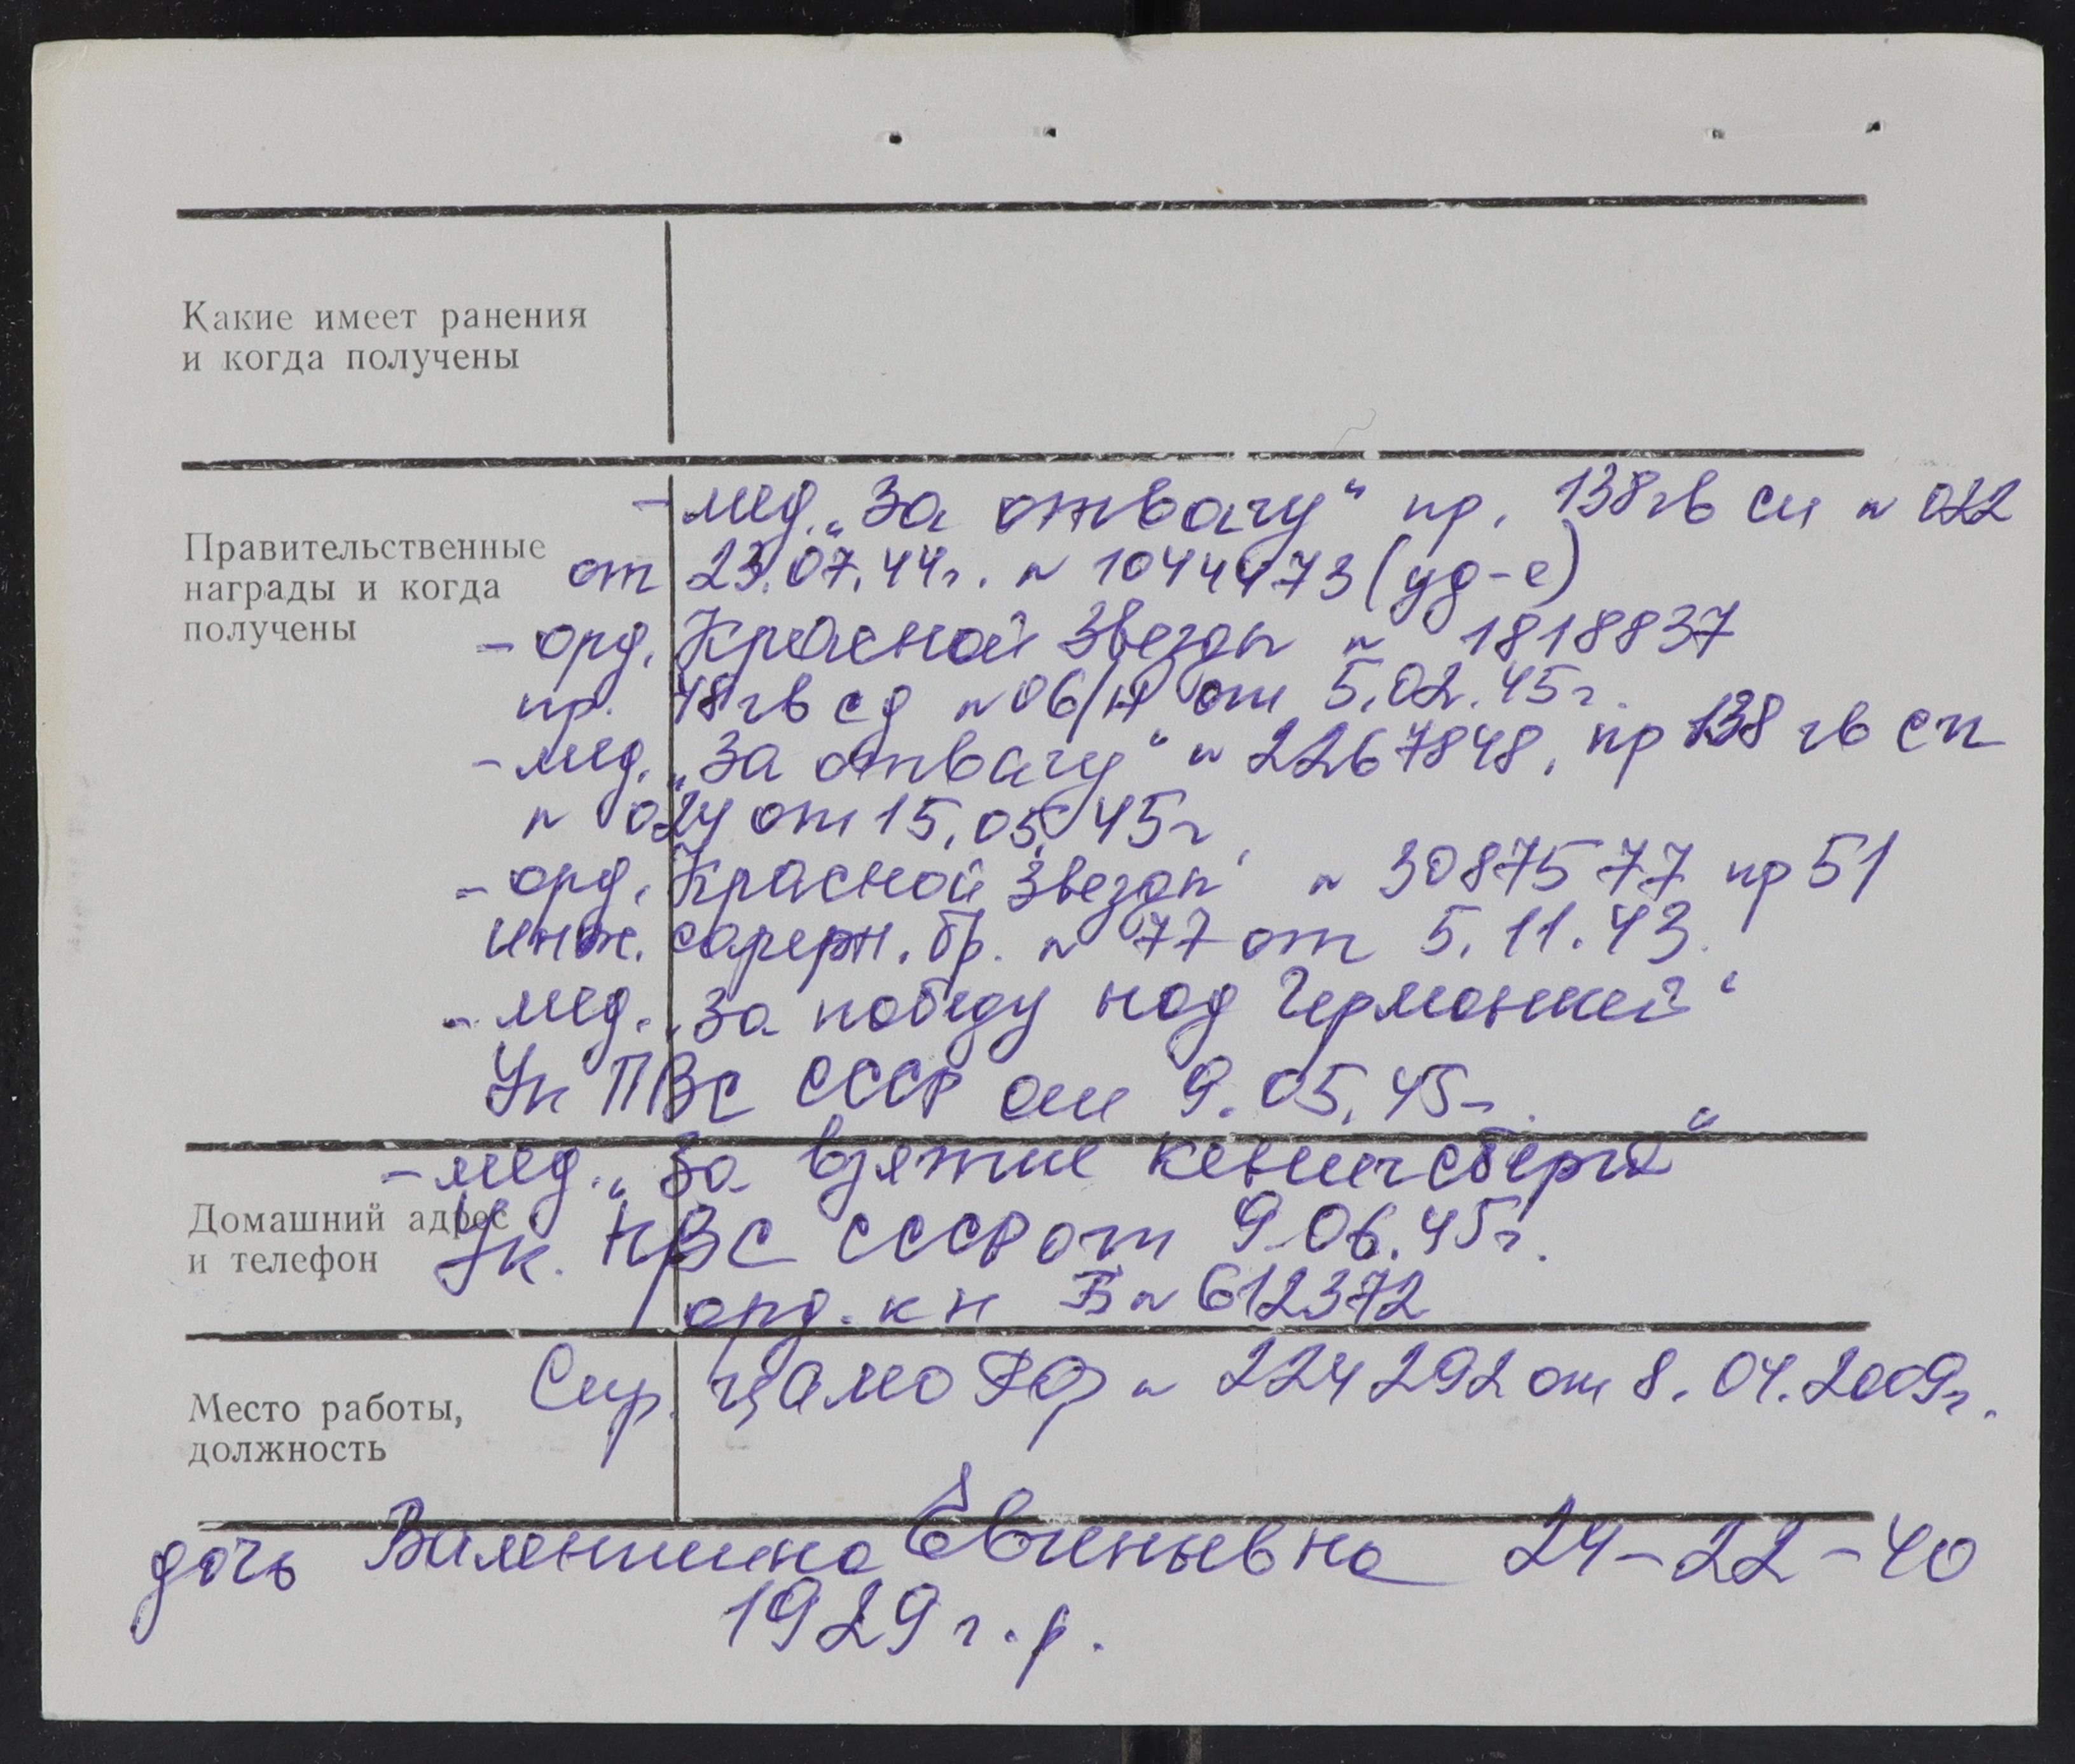 Какие имеет ранения
и когда получены
Правительственные
награды и когда
получены
- мед. „За отвагу“ пр. 138 гв сп № 022
от 23.07.44г. № 1044473 (уд-е)
- орд. Красной Звезды № 1818837
пр. 48 гв сд № 06/н от 5.02.45г.
- мед. „За отвагу“ № 2267848, пр 138 гв сп
№ 024 от 15.05.45г.
- орд. Красной Звезды № 3087577 пр 51
инж. саперн. бр. № 77 от 5.11.43.
- мед. „За победу над Германией“
Ук ПВС СССР от 9.05.45г.
- мед. „За взятие Кенигсберга“
Домашний адрес
и телефон
Ук. ПВС СССР от 9.06.45г.
орд. кн Б № 612372
Спр. ЦАМО РФ № 224292 от 8.04.2009г.
Место работы,
должность
дочь Валентина Евгеньевна 24-22-40
1929 г.р.